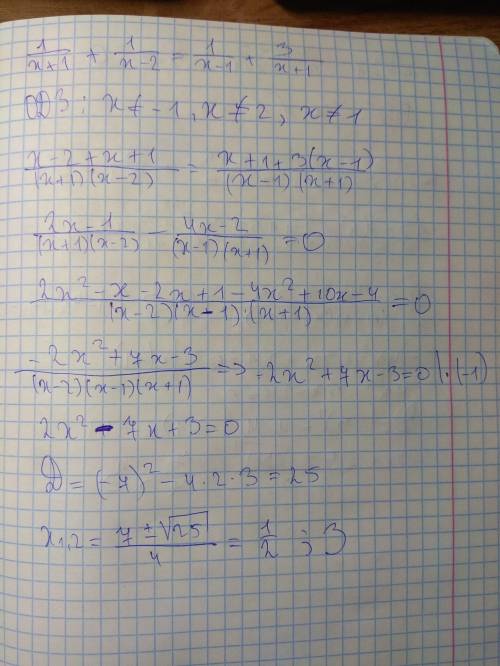 1/(x+1) + 1/(x-2) = 1/(x-1) + 3/(x+1)
ОДЗ: x ≠ -1, x ≠ 2, x ≠ 1
(x-2+x+1)/((x+1)(x-2)) = (x+1+3(x-1))/((x-1)(x+1))
(2x-1)/((x+1)(x-2)) - (4x-2)/((x-1)(x+1)) = 0
(2x²-x-2x+1-4x²+10x-4)/((x-2)(x-1)·(x+1)) = 0
(-2x²+7x-3)/((x-2)(x-1)(x+1)) => -2x²+7x-3=0 |·(-1)
2x²-7x+3=0
D=(-7)²-4·2·3=25
x1,2 = (7±√25)/4 = 1/2 ; 3